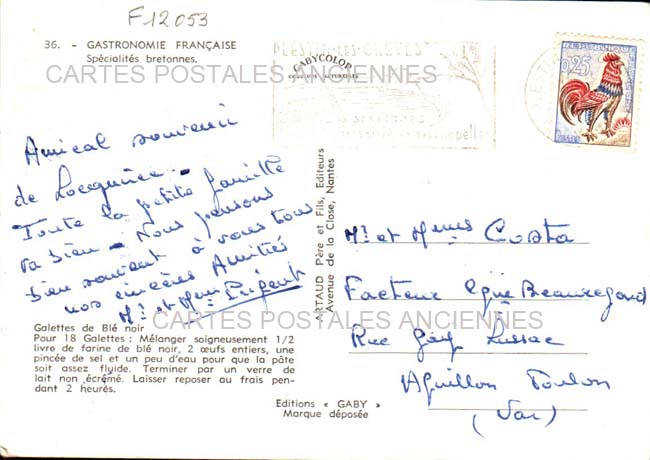 F12053
36. - GASTRONOMIE FRANÇAISE
Spécialités bretonnes.
GABYCOLOR
COULEURS NATURELLES
PLESTIN-LES-GREVES
0,25
POSTES
CARTES POSTALES ANCIENNES
Amical souvenir
de Locquirec.
Toute la petite famille
va bien - Nous pensons
bien souvent à vous tous
nos sincères Amitiés
Mr et Mme Prigent
ARTAUD Père et Fils, Editeurs
Avenue de la Close, Nantes
Mr et Mmes Costa
Facteur Beauregard
Rue Gay Lussac
Aguillon Toulon
(Var)
CARTES POSTALES ANCIENNES
Galettes de Blé noir
Pour 18 Galettes : Mélanger soigneusement 1/2
livre de farine de blé noir, 2 œufs entiers, une
pincée de sel et un peu d'eau pour que la pâte
soit assez fluide. Terminer par un verre de
lait non écrémé. Laisser reposer au frais pen-
dant 2 heures.
Editions « GABY »
Marque déposée